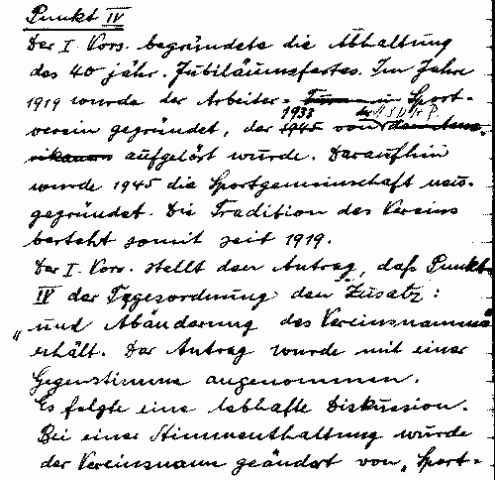 Punkt IV
Der I. Vors. begründete die Abhaltung
des 40 jähr. Jubiläumsfestes. Im Jahre
1919 wurde der Arbeiter- Turn- u. Sport-
1933 der N.S.D.A.P.
verein gegründet, der 1945 von den Ame-
rikanern aufgelöst wurde. Daraufhin
wurde 1945 die Sportgemeinschaft neu-
gegründet. Die Tradition des Vereins
besteht somit seit 1919.
Der I. Vors. stellt den Antrag, daß Punkt
IV der Tagesordnung den Zusatz:
"und Abänderung des Vereinsnamens
erhält. Der Antrag wurde mit einer
Gegenstimme angenommen.
Es folgte eine lebhafte Diskussion.
Bei einer Stimmenthaltung wurde
der Vereinsname geändert von „Sport-